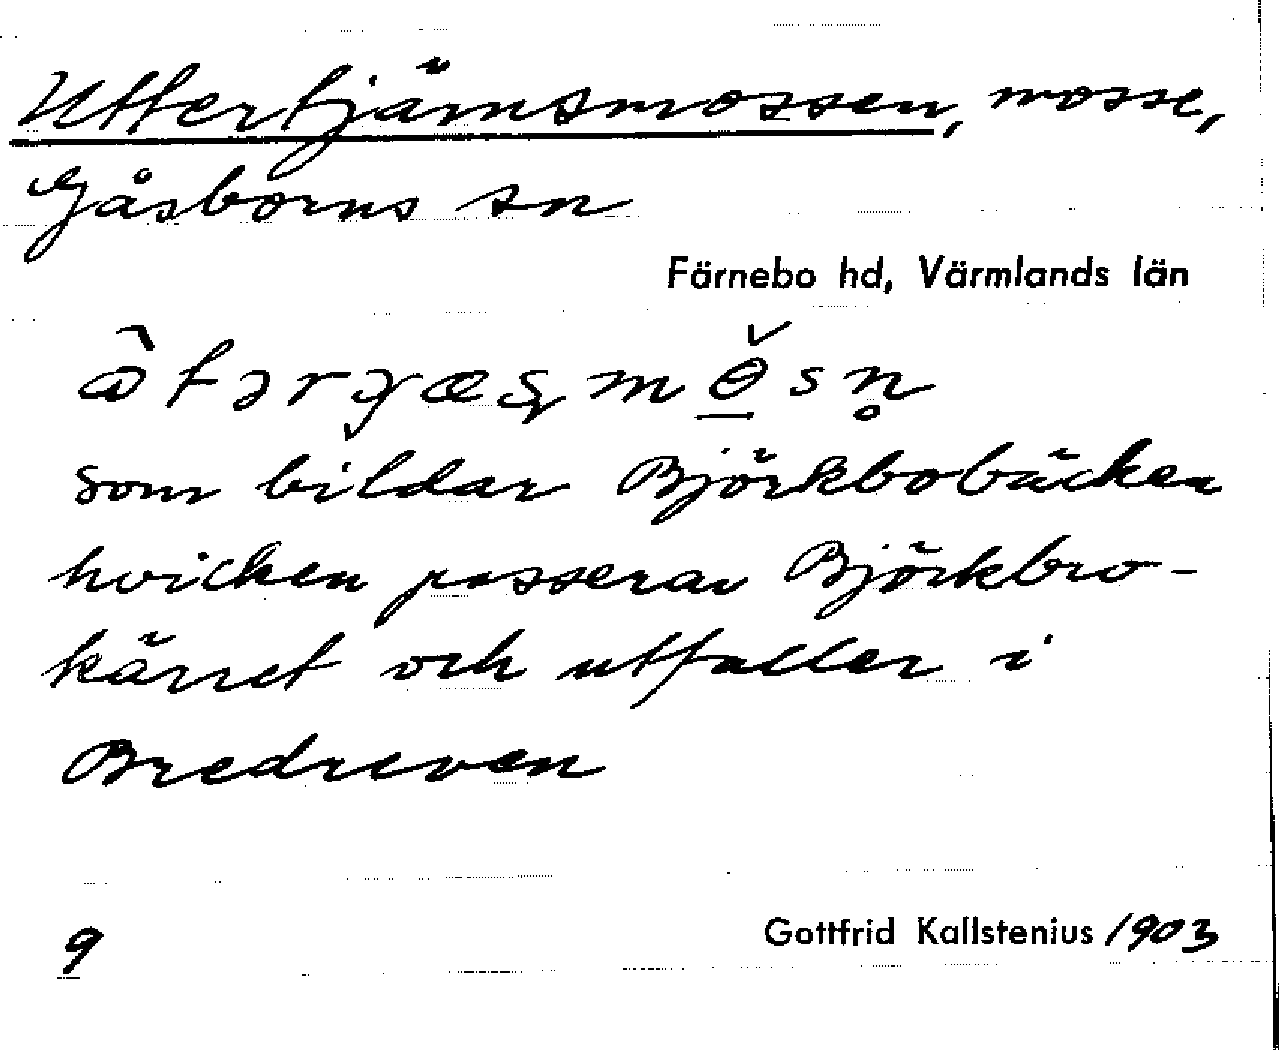 Uttertjärnsmossen, mosse,
Gåsborns sn
Färnebo hd, Värmlands län
som bildar Björkbobäcken
hvilken passerar Björkbro-
kärret och utfaller i
Bredreven
9
Gottfrid Kallstenius 1903